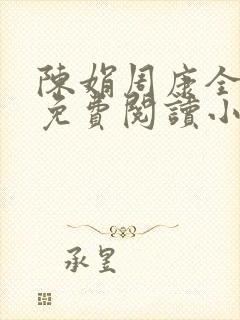 陳娟周康全
免費閱讀小
承昱